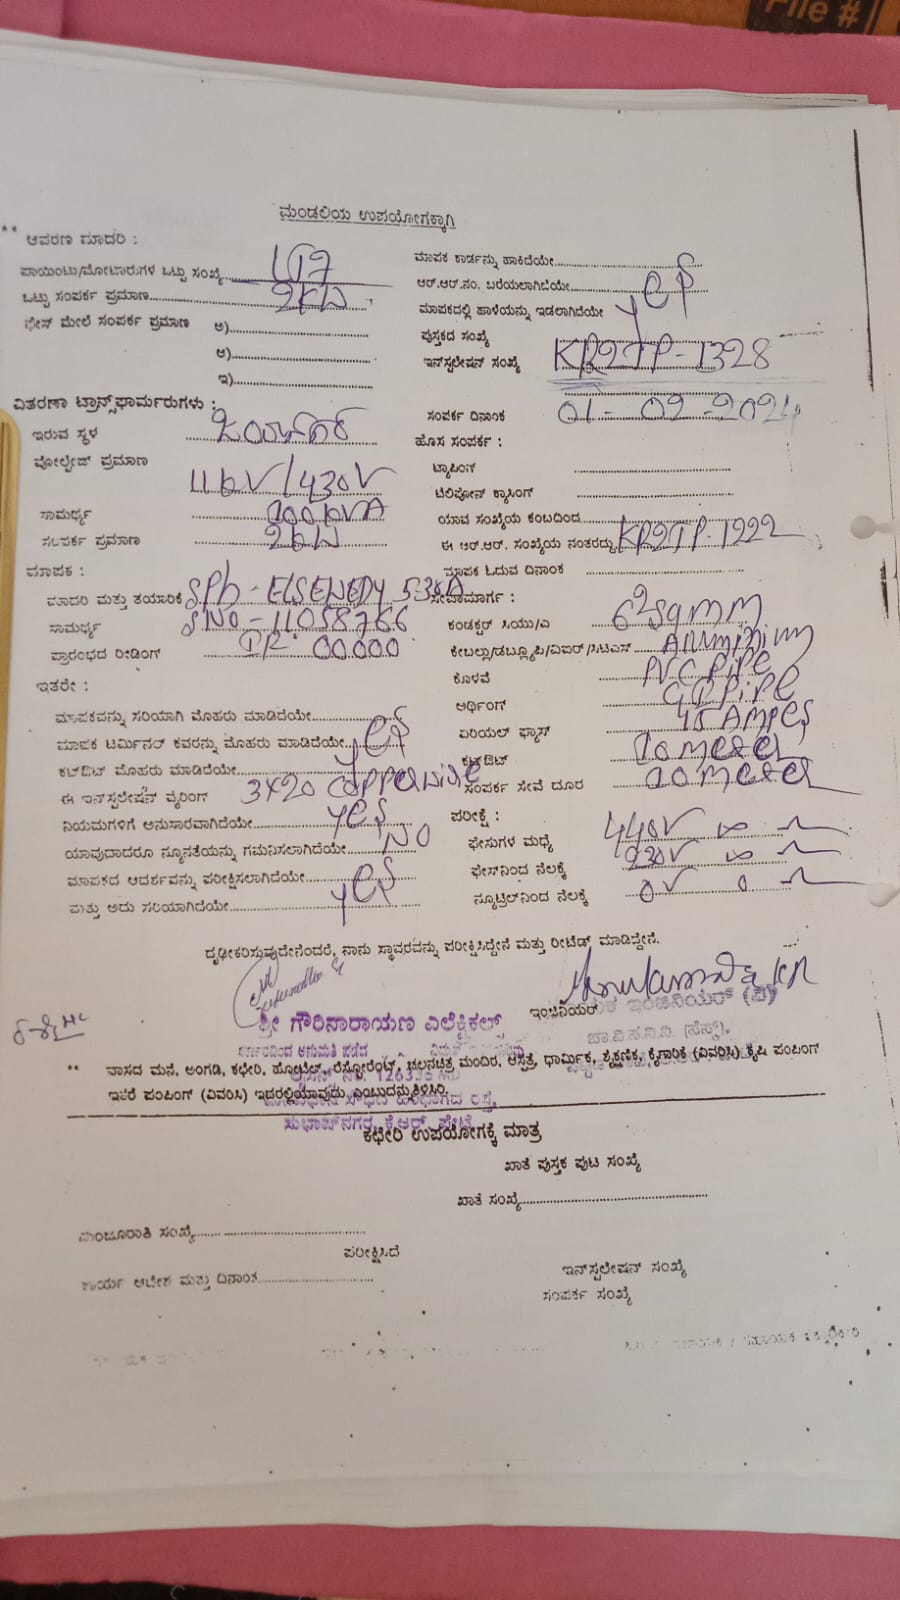 File #
ಮಂಡಲಿಯ ಉಪಯೋಗಕ್ಕಾಗಿ
** ಆವರಣ ಮಾದರಿ :
ಪಾಯಿಂಟು/ಮೋಟಾರುಗಳ ಒಟ್ಟು ಸಂಖ್ಯೆ
ಒಟ್ಟು ಸಂಪರ್ಕ ಪ್ರಮಾಣ 2kW
ಫೇಸ್ ಮೇಲೆ ಸಂಪರ್ಕ ಪ್ರಮಾಣ ಅ)
ಆ)
ಇ)
ಮಾಪಕ ಕಾರ್ಡನ್ನು ಹಾಕಿದೆಯೇ
ಆರ್.ಆರ್.ನಂ. ಬರೆಯಲಾಗಿದೆಯೇ yes
ಮಾಪಕದಲ್ಲಿ ಹಾಳೆಯನ್ನು ಇಡಲಾಗಿದೆಯೇ
ಪುಸ್ತಕದ ಸಂಖ್ಯೆ
ಇನ್‌ಸ್ಟಲೇಷನ್ ಸಂಖ್ಯೆ KR2JP-1328
ವಿತರಣಾ ಟ್ರಾನ್ಸ್‌ಫಾರ್ಮರುಗಳು :
ಇರುವ ಸ್ಥಳ
ವೋಲ್ಟೇಜ್ ಪ್ರಮಾಣ 11kV/430V
ಸಾಮರ್ಥ್ಯ 100kVA
ಸಂಪರ್ಕ ಪ್ರಮಾಣ 2kW
ಸಂಪರ್ಕ ದಿನಾಂಕ 01-02-2024
ಹೊಸ ಸಂಪರ್ಕ :
ಟ್ಯಾಪಿಂಗ್
ಟೆಲಿಫೋನ್ ಕ್ರಾಸಿಂಗ್
ಯಾವ ಸಂಖ್ಯೆಯ ಕಂಬದಿಂದ
ಈ ಆರ್.ಆರ್. ಸಂಖ್ಯೆಯ ನಂತರದ್ದು KR2JP-1222
ಮಾಪಕ ಓದುವ ದಿನಾಂಕ
ಮಾಪಕ :
ಮಾದರಿ ಮತ್ತು ತಯಾರಿಕೆ SPh-ELSEWEDY 5-30A
ಸಾಮರ್ಥ್ಯ SNO-11058766
ಪ್ರಾರಂಭದ ರೀಡಿಂಗ್ I/R 00000
ಸೇವಾಮಾರ್ಗ :
ಕಂಡಕ್ಟರ್ ಸಿಯು/ಎ 6sqmm
ಕೇಬಲ್ಲು/ಡಬ್ಲ್ಯೂಪಿ/ವಿಐಆರ್/ಸಿಟಿಎಸ್ Aluminium
ಕೊಳವೆ PVC Pipe
ಅರ್ಥಿಂಗ್ GI Pipe
ಏರಿಯಲ್ ಫ್ಯೂಸ್ 15 Ampes
ಕಟ್‌ಔಟ್ 10 meter
ಸಂಪರ್ಕ ಸೇವೆ ದೂರ 20 meter
ಇತರೇ :
ಮಾಪಕವನ್ನು ಸರಿಯಾಗಿ ಮೊಹರು ಮಾಡಿದೆಯೇ
ಮಾಪಕ ಟರ್ಮಿನಲ್ ಕವರನ್ನು ಮೊಹರು ಮಾಡಿದೆಯೇ yes
ಕಟ್‌ಔಟ್ ಮೊಹರು ಮಾಡಿದೆಯೇ
ಈ ಇನ್‌ಸ್ಟಲೇಷನ್ ವೈರಿಂಗ್ 3x20 copper wire
ನಿಯಮಗಳಿಗೆ ಅನುಸಾರವಾಗಿದೆಯೇ yes
ಯಾವುದಾದರೂ ನ್ಯೂನತೆಯನ್ನು ಗಮನಿಸಲಾಗಿದೆಯೇ NO
ಮಾಪಕದ ಆದರ್ಶವನ್ನು ಪರೀಕ್ಷಿಸಲಾಗಿದೆಯೇ
ಮತ್ತು ಅದು ಸರಿಯಾಗಿದೆಯೇ yes
ಪರೀಕ್ಷೆ :
ಫೇಸುಗಳ ಮಧ್ಯೆ 440V ∞
ಫೇಸ್‌ನಿಂದ ನೆಲಕ್ಕೆ 230V ∞
ನ್ಯೂಟ್ರಲ್‌ನಿಂದ ನೆಲಕ್ಕೆ 0V 0
ದೃಢೀಕರಿಸುವುದೇನೆಂದರೆ, ನಾನು ಸ್ಥಾವರವನ್ನು ಪರೀಕ್ಷಿಸಿದ್ದೇನೆ ಮತ್ತು ರೀಟೆಡ್ ಮಾಡಿದ್ದೇನೆ.
ಇಂಜಿನಿಯರ್
ಇಂಜಿನಿಯರ್ (ವಿ)
ಚಾ.ವಿ.ಸ.ನಿ.ನಿ. (ಸೆಸ್ಕ್),
ಶ್ರೀ ಗೌರಿನಾರಾಯಣ ಎಲೆಕ್ಟ್ರಿಕಲ್ಸ್
** ವಾಸದ ಮನೆ, ಅಂಗಡಿ, ಕಛೇರಿ, ಹೋಟೆಲ್, ರೆಸ್ಟೋರೆಂಟ್, ಚಲನಚಿತ್ರ ಮಂದಿರ, ಆಸ್ಪತ್ರೆ, ಧಾರ್ಮಿಕ, ಶೈಕ್ಷಣಿಕ, ಕೈಗಾರಿಕೆ (ವಿವರಿಸಿ) ಕೃಷಿ ಪಂಪಿಂಗ್
ಇತರೆ ಪಂಪಿಂಗ್ (ವಿವರಿಸಿ) ಇದರಲ್ಲಿಯಾವುದು ಎಂಬುದನ್ನು ತಿಳಿಸಿರಿ.
ಸುಭಾಷ್‌ನಗರ, ಕೆ.ಆರ್. ಪೇಟೆ
ಕಛೇರಿ ಉಪಯೋಗಕ್ಕೆ ಮಾತ್ರ
ಖಾತೆ ಪುಸ್ತಕ ಪುಟ ಸಂಖ್ಯೆ
ಖಾತೆ ಸಂಖ್ಯೆ
ಮಂಜೂರಾತಿ ಸಂಖ್ಯೆ
ಪರೀಕ್ಷಿಸಿದೆ
ಕಾರ್ಯ ಆದೇಶ ಮತ್ತು ದಿನಾಂಕ
ಇನ್‌ಸ್ಟಲೇಷನ್ ಸಂಖ್ಯೆ
ಸಂಪರ್ಕ ಸಂಖ್ಯೆ